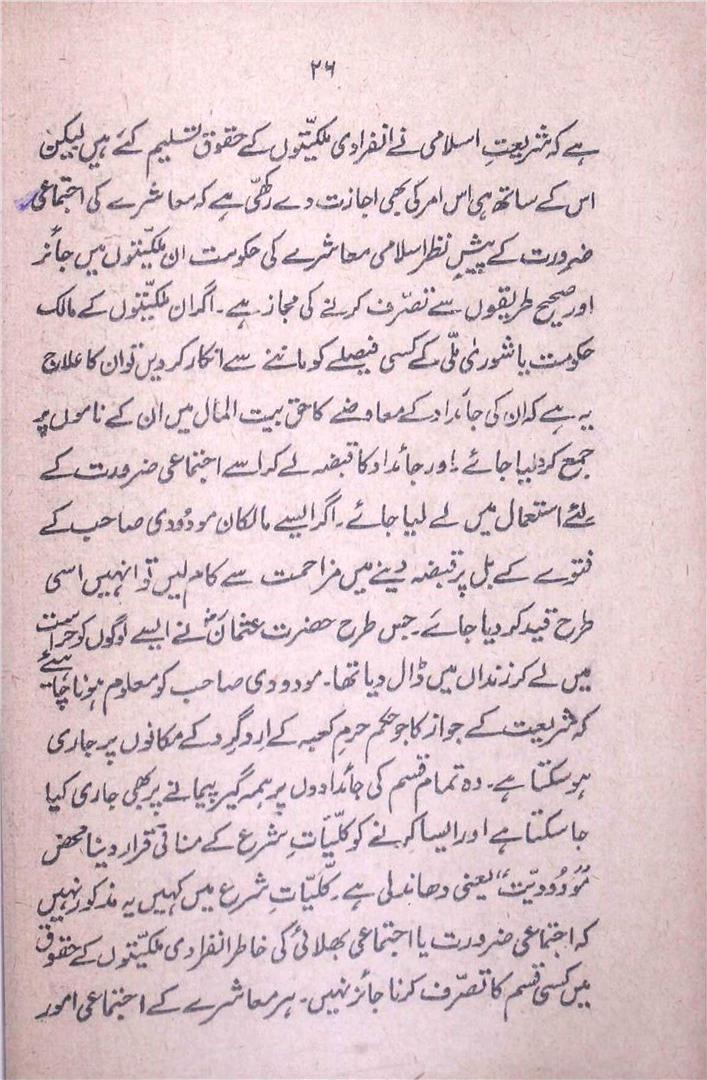 ۲۶
ہے کہ شریعتِ اسلامی نے انفرادی ملکیّتوں کے حقوق تسلیم کئے ہیں لیکن
اس کے ساتھ ہی اس امر کی بھی اجازت دے رکھّی ہے کہ معاشرے کی اجتماعی
ضرورت کے پیشِ نظر اسلامی معاشرے کی حکومت ان ملکیّتوں میں جائز
اور صحیح طریقوں سے تصرّف کرنے کی مجاز ہے۔ اگر ان ملکیّتوں کے مالک
حکومت یا شوریٰ ملّی کے کسی فیصلے کو ماننے سے انکار کر دیں تو ان کا علاج
یہ ہے کہ ان کی جائداد کے معاوضے کا حق بیت المال میں ان کے ناموں پر
جمع کر لیا جائے۔ اور جائداد کا قبضہ لے کر اسے اجتماعی ضرورت کے
لئے استعمال میں لے لیا جائے۔ اگر ایسے مالکان مودُودی صاحب کے
فتوے کے بل پر قبضہ دینے میں مزاحمت سے کام لیں تو انہیں اسی
طرح قید کر دیا جائے۔ جس طرح حضرت عثمانؓ نے ایسے لوگوں کو حراست
میں لے کر زنداں میں ڈال دیا تھا۔ مودودی صاحب کو معلوم ہونا چاہئے
کہ شریعت کے جواز کا جو حکم حرمِ کعبہ کے اِردگِرد کے مکانوں پر جاری
ہو سکتا ہے۔ وہ تمام قسم کی جائدادوں پر ہمہ گیر پیمانے پر بھی جاری کیا
جا سکتا ہے اور ایسا کرنے کو کلیّاتِ شرع کے منافی قرار دینا محض
”مودُودیّت“ یعنی دھاندلی ہے۔ کلیّاتِ شرع میں کہیں یہ مذکور نہیں
کہ اجتماعی ضرورت یا اجتماعی بھلائی کی خاطر انفرادی ملکیّتوں کے حقوق
میں کسی قسم کا تصرّف کرنا جائز نہیں۔ ہر معاشرے کے اجتماعی امور